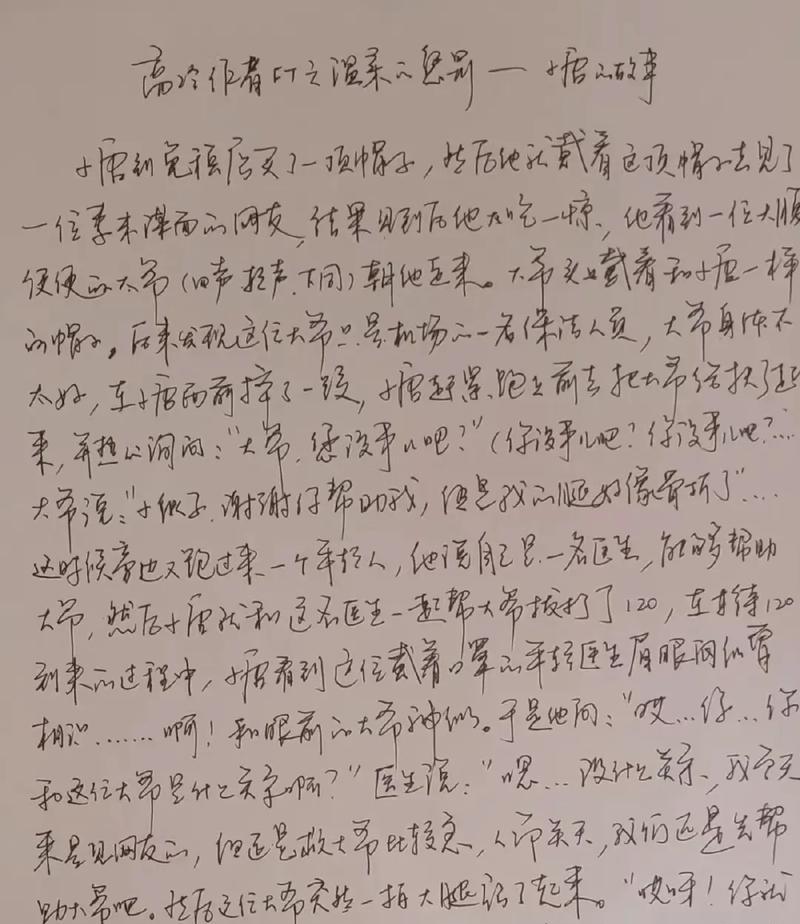 高冷作者FT之温柔的您别——小唐的故事
小唐到免税店买了一顶帽子，然后他就戴着这顶帽子去见了
一位素未谋面的网友，结果见到后他大吃一惊，他看到一位大腹
便便的大爷（四声轻声，下同）朝他走来。大爷头上戴着和小唐一样
的帽子。后来发现这位大爷只是机场的一名保洁人员，大爷身体不
太好，在小唐面前摔了一跤，小唐赶紧跑上前去把大爷给扶了起
来，并热心询问：“大爷，您没事儿吧？”（你没事儿吧？你没事儿吧？…
大爷说：“小伙子，谢谢你帮助我，但是我的腿好像骨折了”…
这时候旁边又跑过来一个年轻人，他说自己是一名医生，能够帮助
大爷，然后小唐就和这名医生一起帮大爷拨打了120，在等待120
到来的过程中，小唐看到这位戴着口罩的年轻医生眉眼间似曾
相识……啊！和眼前的大爷神似。于是他问：“哎…你…你
和这位大爷是什么关系啊？”医生说：“嗯…没什么关系，我今天
来是见网友的，但还是救大爷比较急，人命关天，我们还是先帮
助大爷吧。然后这位大爷突然一拍大腿站了起来。“哎呀！你就